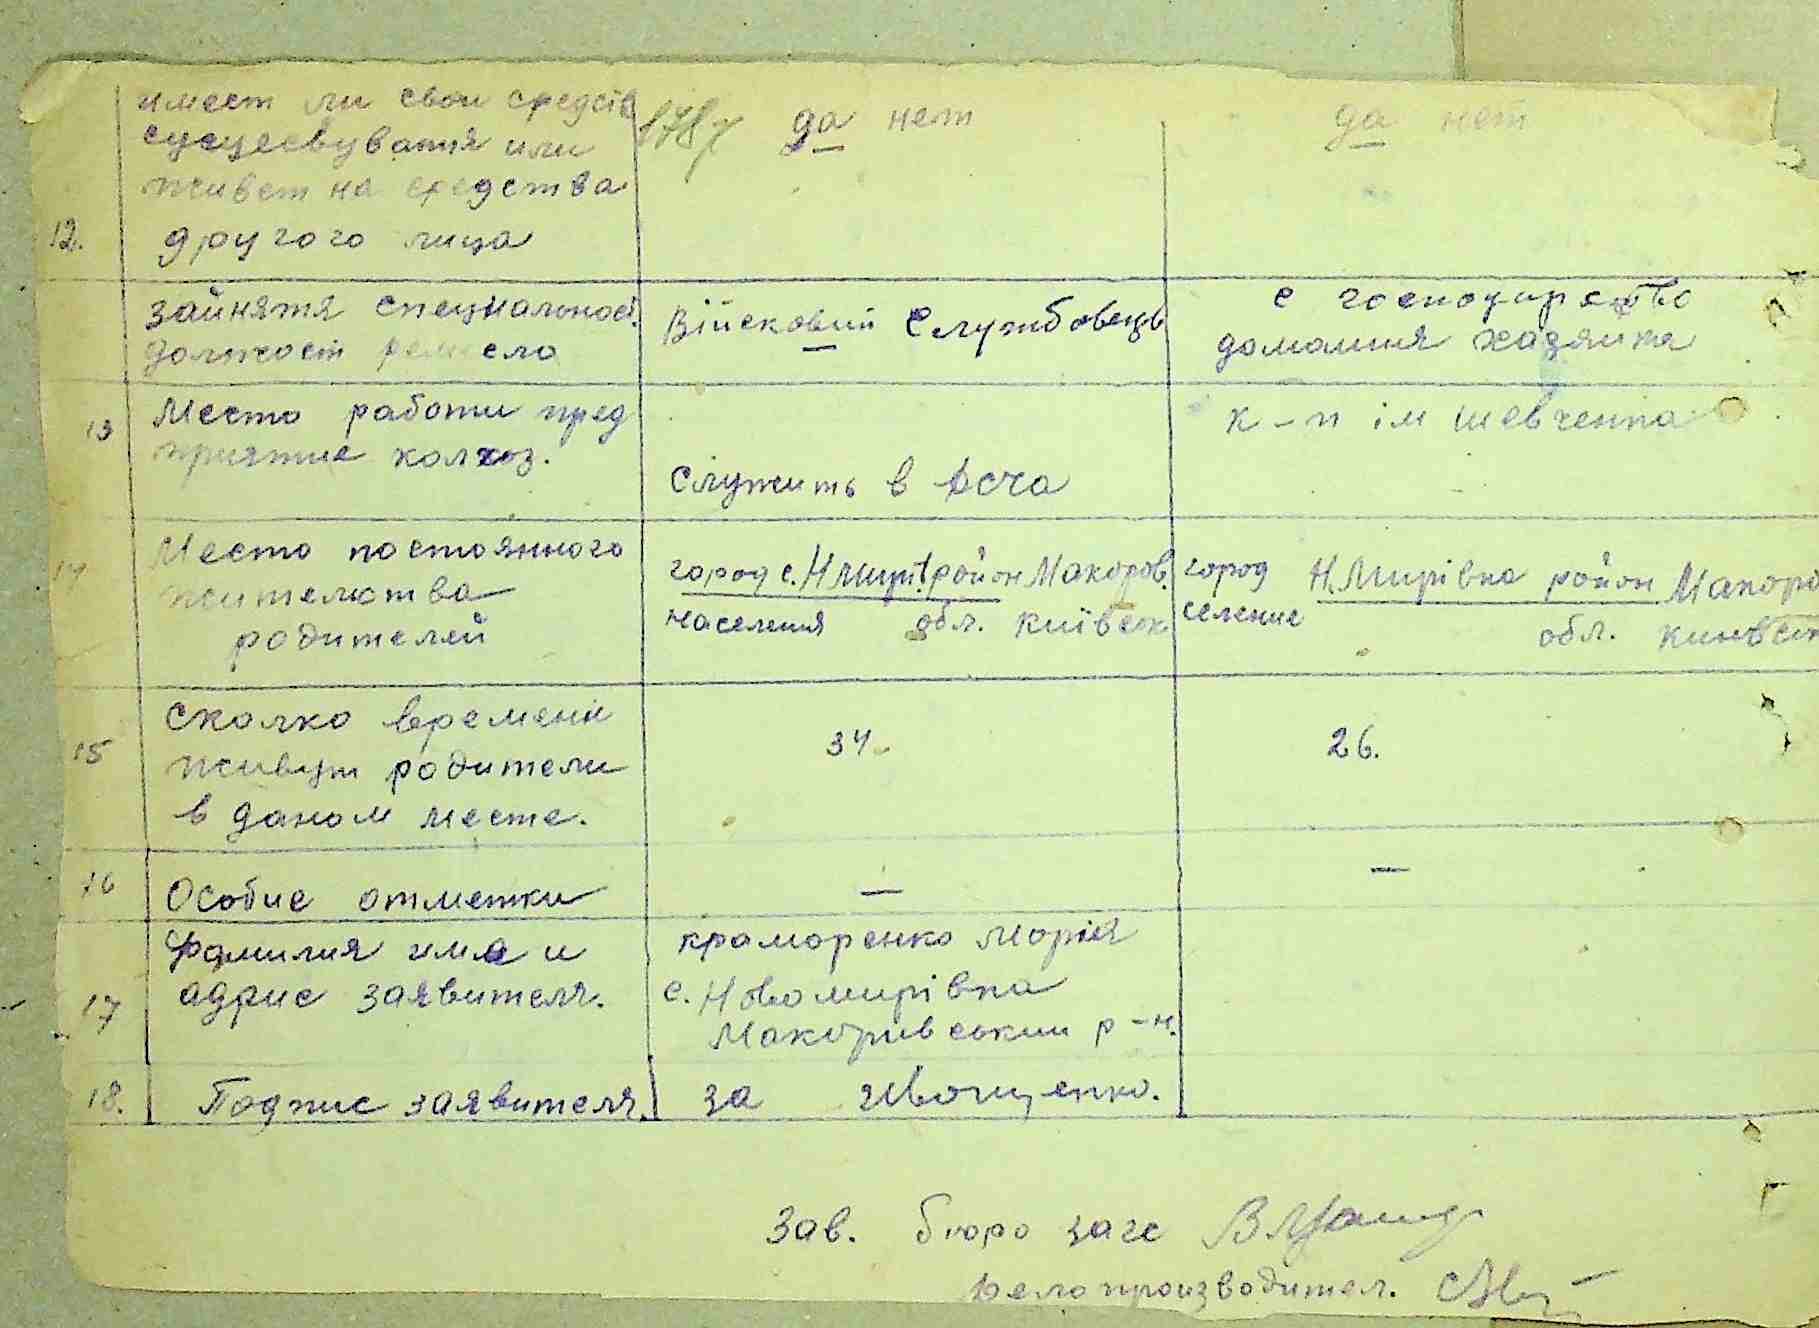 имеет ли свои средств
сусцесвуваття или
живет на средства
12. другого лица
да нет
да нет
зайнятя специальност.
должност ремесло
Війсковий Службовець
с господирство
домашня хазяйка
13 Место работи пред
приятие колхоз.
Служить в рсча
к-п ім шевченка
14 Место постоянного
жителства
родителей
город с. Н мирі район Макоров.
населения обл. київск
город Н. Мирівка район Макоро
селение обл. киивск
15 сколко времени
живут родители
в даном месте.
34.
26.
16 Особие отметки
—
—
17 Фамилия имя и
адрис заявителя.
краморенко Морія
с. Новомирівка
Макорівський р-н.
18. Подпис заявителя.
за
Зав. бюро загс
Делопроизводител.